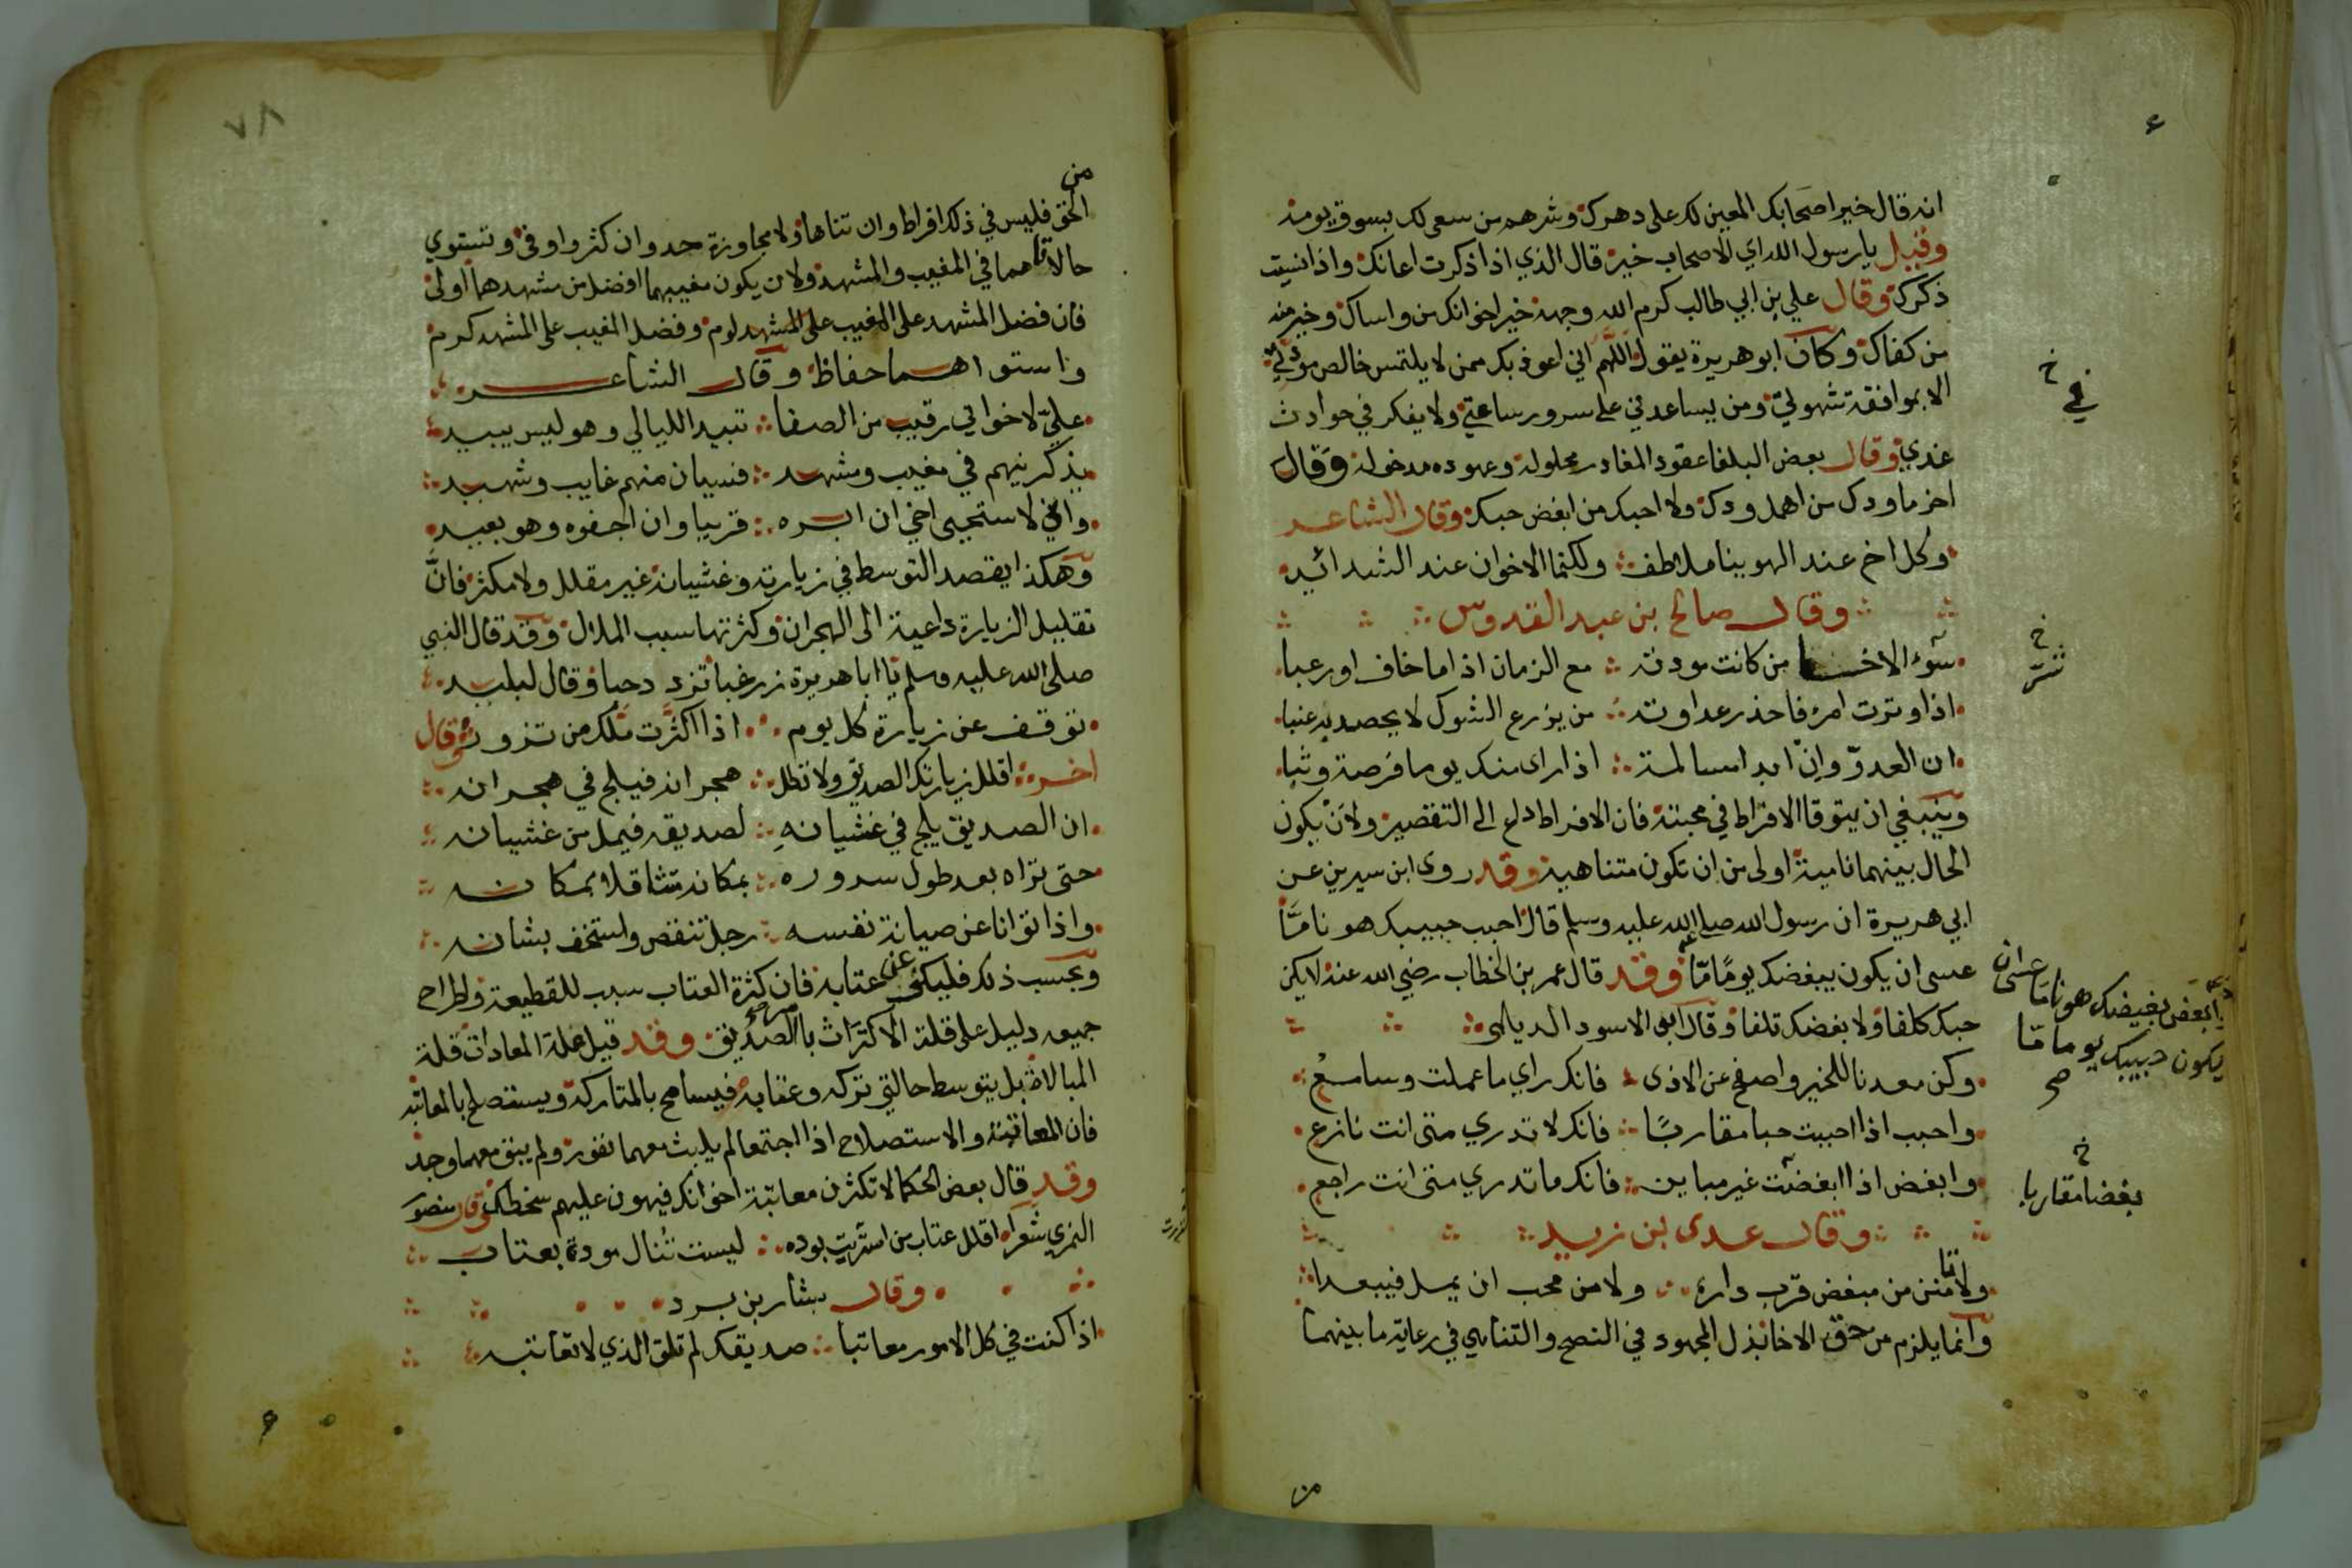 انه قال خير اصحابك المعين لك على دهرك وشرهم من سعى لك بسوق يومه
وقيل يا رسول الله اي الاصحاب خير قال الذي اذا ذكرت اعانك واذا نسيت
ذكرك وقال علي بن ابي طالب كرم الله وجهه خير اخوانك من واساك وخير منه
من كفاك وكان ابو هريرة يقول اللهم اني اعوذ بك ممن لا يلتمس خالص مودتي
الا بموافقة شهوتي ومن يساعدني على سرور ساعتي ولا يفكر في حوادث
غدي وقال بعض البلغا عقود الغادر محلولة وعهوده مدخولة وقال
اخر ما ودك من اهمل ودك ولا احبك من ابغض حبك وقال الشاعر
وكل اخ عند الهوينا ملاطف ولكنما الاخوان عند الشدائد
وقال صالح بن عبد القدوس
سوء الاخا من كانت مودته مع الزمان اذا ما خاف او رعبا
اذا وترت امرء فاحذر عداوته من يزرع الشوك لا يحصد به عنبا
ان العدو وان ابدا مسالمة اذا راى منك يوما فرصة وثبا
وينبغي ان يتوقا الافراط في محبته فان الافراط داع الى التقصير ولان يكون
الحال بينهما نامية اولى من ان تكون متناهية وقد روى ابن سيرين عن
ابي هريرة ان رسول الله صلى الله عليه وسلم قال احبب حبيبك هونا ما
عسى ان يكون بغيضك يوما ما وقد قال عمر بن الخطاب رضي الله عنه لا يكن
حبك كلفا ولا بغضك تلفا وقال ابى الاسود الديالى
وكن معدنا للخير واصفح عن الاذى فانك راي ما عملت وسامع
واحبب اذا احببت حبا مقاربا فانك لا تدري متى انت نازع
وابغض اذا ابغضت غير مباين فانك ما تدري متى انت راجع
وقال عدى بن زيد
ولا تامنن من مبغض قرب داره ولا من محب ان يمل فيبعدا
وانما يلزم من حق الاخا بذل المجهود في النصح والتناهي في رعاية ما بينهما
من
خ
في
خ
شر
وابغض بغيضك هونا ما عسى ان
يكون حبيبك يوما ما
صح
خ
بغضا مقاربا
٧٨
من
الحق فليس في ذلك افراط وان تناها ولا مجاوزة حد وان كثر واوفى وتستوي
حالاتاهما في المغيب والمشهد ولا ن يكون مغيبهما افضل من مشهدهما اولى
فان فضل المشهد على المغيب لوم وفضل المغيب على المشهد كرم
واستواهما حفاظ وقال الشاعر
علي لاخواني رقيب من الصفا تبيد الليالي وهو ليس يبيد
يذكرنيهم في مغيب ومشهد فسيان منهم غايب وشهيد
واني لاستحيى اخي ان ابره قريبا وان اجفوه وهو بعيد
وهكذا يقصد التوسط في زيارته وغشيانه غير مقلل ولا مكثر فان
تقليل الزيارة داعية الى الهجران وكثرتها سبب الملال وقد قال النبي
صلى الله عليه وسلم يا ابا هريرة زر غبا تزدد حبا وقال لبيد
توقف عن زيارة كل يوم اذا اكثرت ملك من تزور وقال
اخر اقلل زيارتك الصديق ولا تطل هجرانه فيلج في هجرانه
ان الصديق يلج في غشيانه لصديقه فيمل من غشيانه
حتى تراه بعد طول سروره بمكانه متثاقلا بمكانه
واذا توانا عن صيانة نفسه رجل تنقص واستخف بشانه
وبحسب ذلك فليكن في عتابه فان كثرة العتاب سبب للقطيعة واطراح
جميعه دليل على قلة الاكتراث بامر الصديق وقد قيل علة المعادات قلة
المبالاة بل يتوسط حالتي تركه وعتابه فيسامح بالمتاركة ويستصلح بالمعاتبة
فان المعاتبة والاستصلاح اذا اجتمعا لم يلبث معهما نفور ولم يبق معهما وجد
وقد قال بعض الحكما لا تكثرن معاتبة اخوانك فيهون عليهم سخطك وقال منصور
النمري شعرا اقلل عتاب من استربت بوده ليست تنال مودة بعتاب
وقال بشار بن برد
اذا كنت في كل الامور معاتبا صديقك لم تلق الذي لا تعاتبه